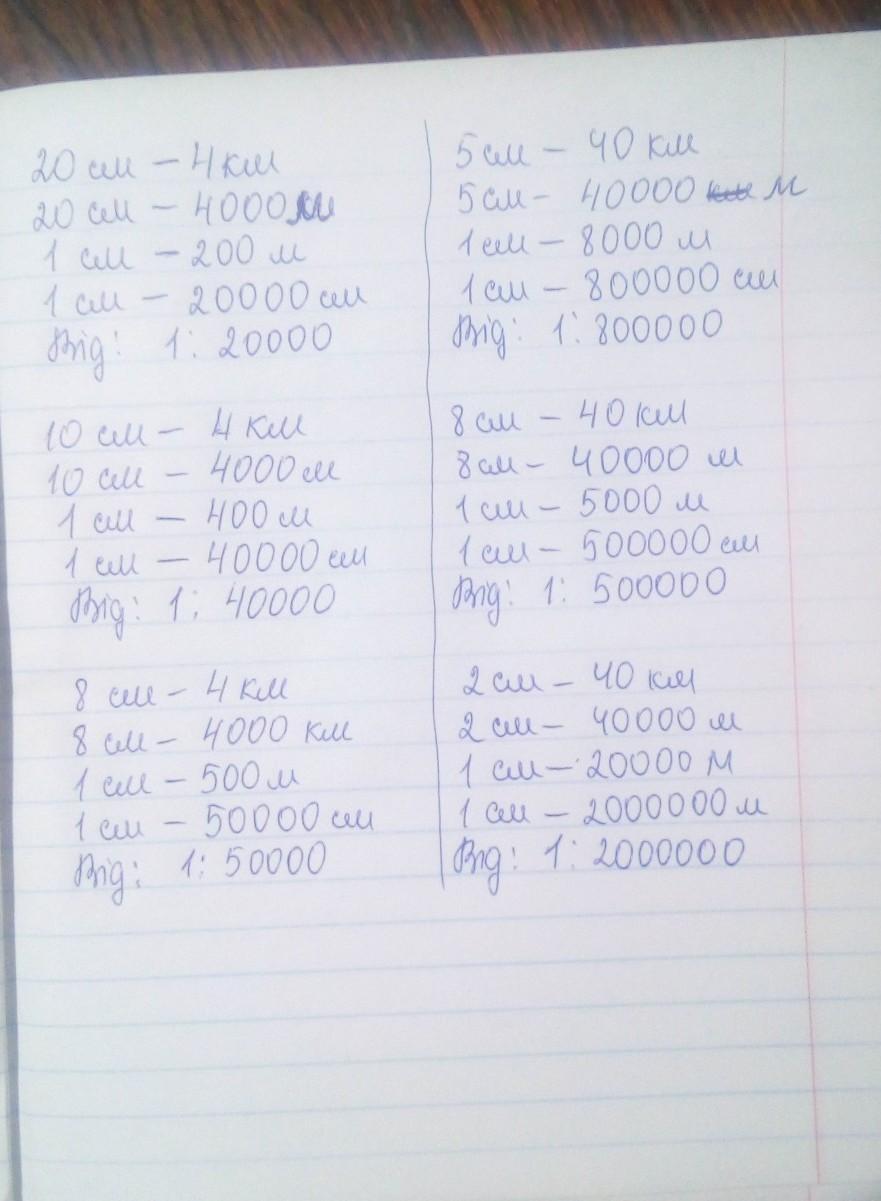 20 см – 4 км
20 см – 4000 м
1 см – 200 м
1 см – 20000 см
Від: 1: 20000
10 см – 4 км
10 см – 4000 м
1 см – 400 м
1 см – 40000 см
Від: 1: 40000
8 см – 4 км
8 см – 4000 км
1 см – 500 м
1 см – 50000 см
Від: 1: 50000
5 см – 40 км
5 см – 40000 м
1 см – 8000 м
1 см – 800000 см
Від: 1: 800000
8 см – 40 км
8 см – 40000 м
1 см – 5000 м
1 см – 500000 см
Від: 1: 500000
2 см – 40 км
2 см – 40000 м
1 см – 20000 м
1 см – 2000000 м
Від: 1: 2000000